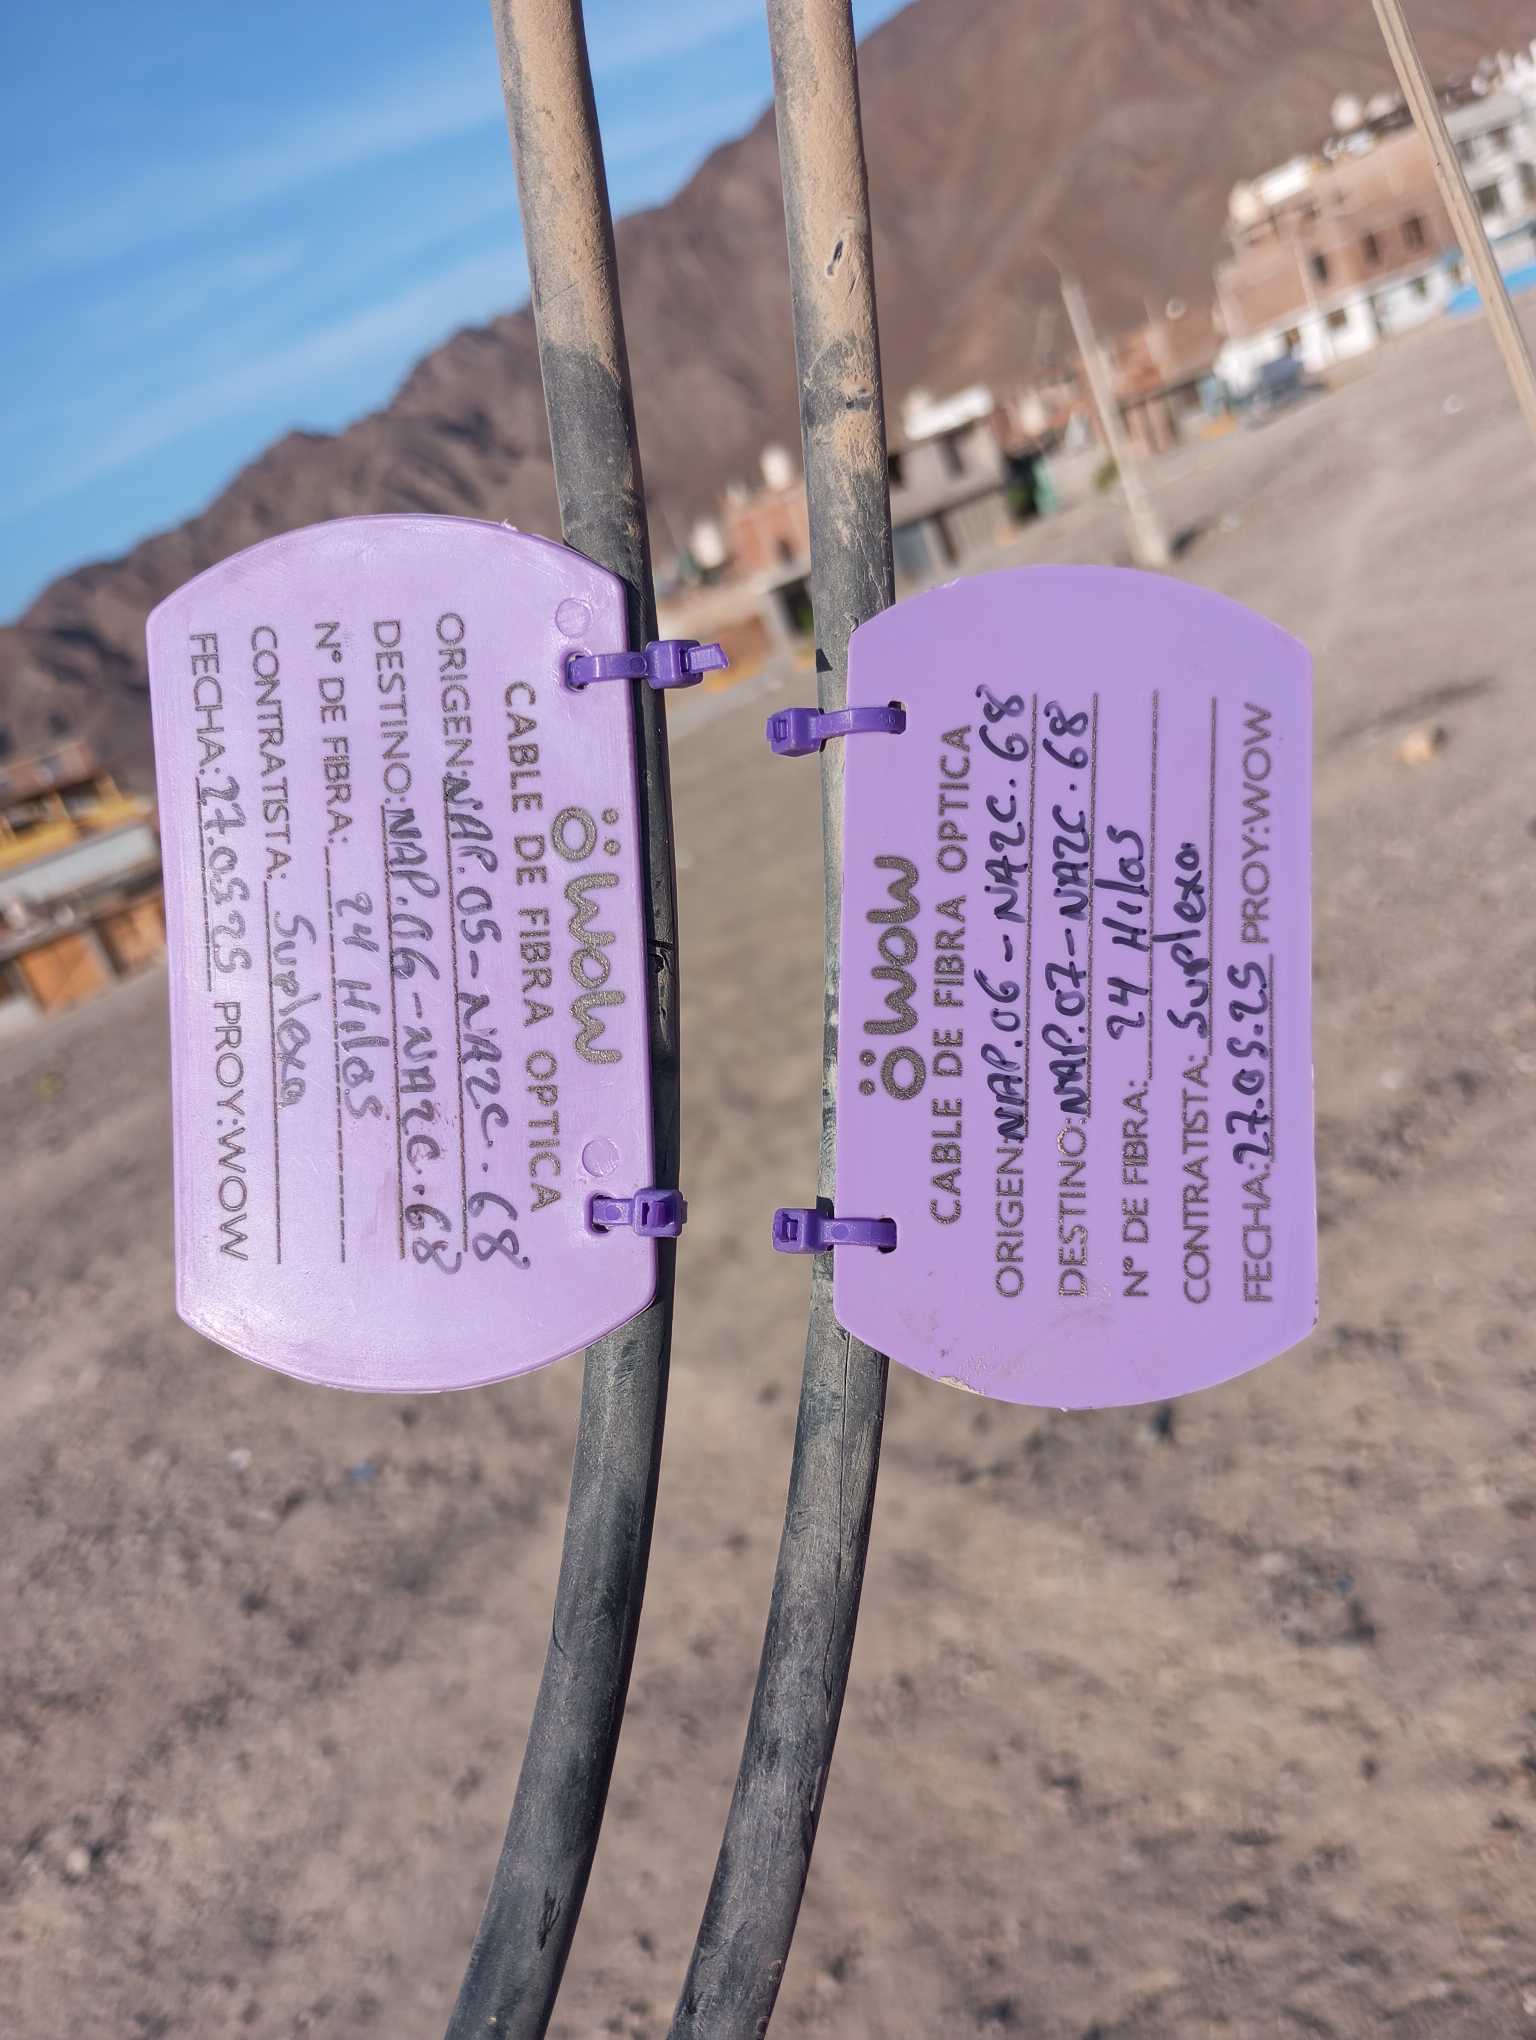 wow
CABLE DE FIBRA OPTICA
ORIGEN: NAP.05-NAZC.68
DESTINO: NAP.06-NAZC.68
N° DE FIBRA: 24 Hilos
CONTRATISTA: Suplexa
FECHA: 27.05.25 PROY: WOW
wow
CABLE DE FIBRA OPTICA
ORIGEN: NAP.06-NAZC.68
DESTINO: NAP.07-NAZC.68
N° DE FIBRA: 24 Hilos
CONTRATISTA: Suplexa
FECHA: 27.05.25 PROY: WOW